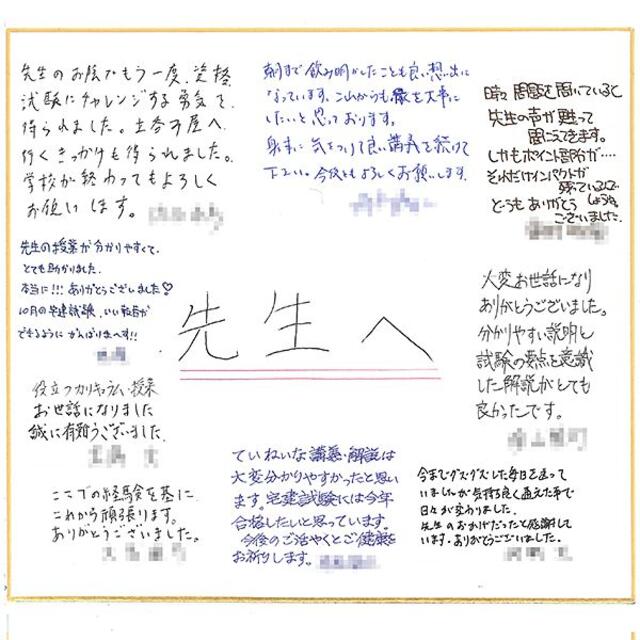 先生のお陰でもう一度、資格
試験にチャレンジする勇気を
得られました。土谷不屋へ
行くきっかけも得られました。
学校が終わってもよろしく
お願いします。
朝まで飲み明かしたことも良い想い出に
なっています。これからも縁を大事に
したいと思っております。
身体に気をつけて良い講義を続けて
下さい。今後ともよろしくお願いします。
時々問題を聞いていると
先生の声が甦って
聞こえてきます。
しかもポイント部分が…
それだけインパクトが
残っているんで
しょうね。
どうもありがとう
ございました。
先生の授業が分かりやすくて、
とても助かりました。
本当に!!! ありがとうございました♡
10月の宅建試験、いい報告が
できるように がんばりまーす!!
先生へ
大変お世話になり
ありがとうございました。
分かりやすい説明と
試験の要点を意識
した解説がとても
良かったです。
役立つカリキュラム・授業
お世話になりました
誠に有難うございました。
ここでの経験を基に
これから頑張ります。
ありがとうございました。
ていねいな講義・解説は
大変分かりやすかったと思い
ます。宅建試験には今年
合格したいと思っています。
今後のご活やくとご健康を
お祈りします。
今までグズグズした毎日を送って
いましたが気持ち良く通えた事で
日々が変わりました。
先生のおかげだったと感謝して
います。ありがとうございました。